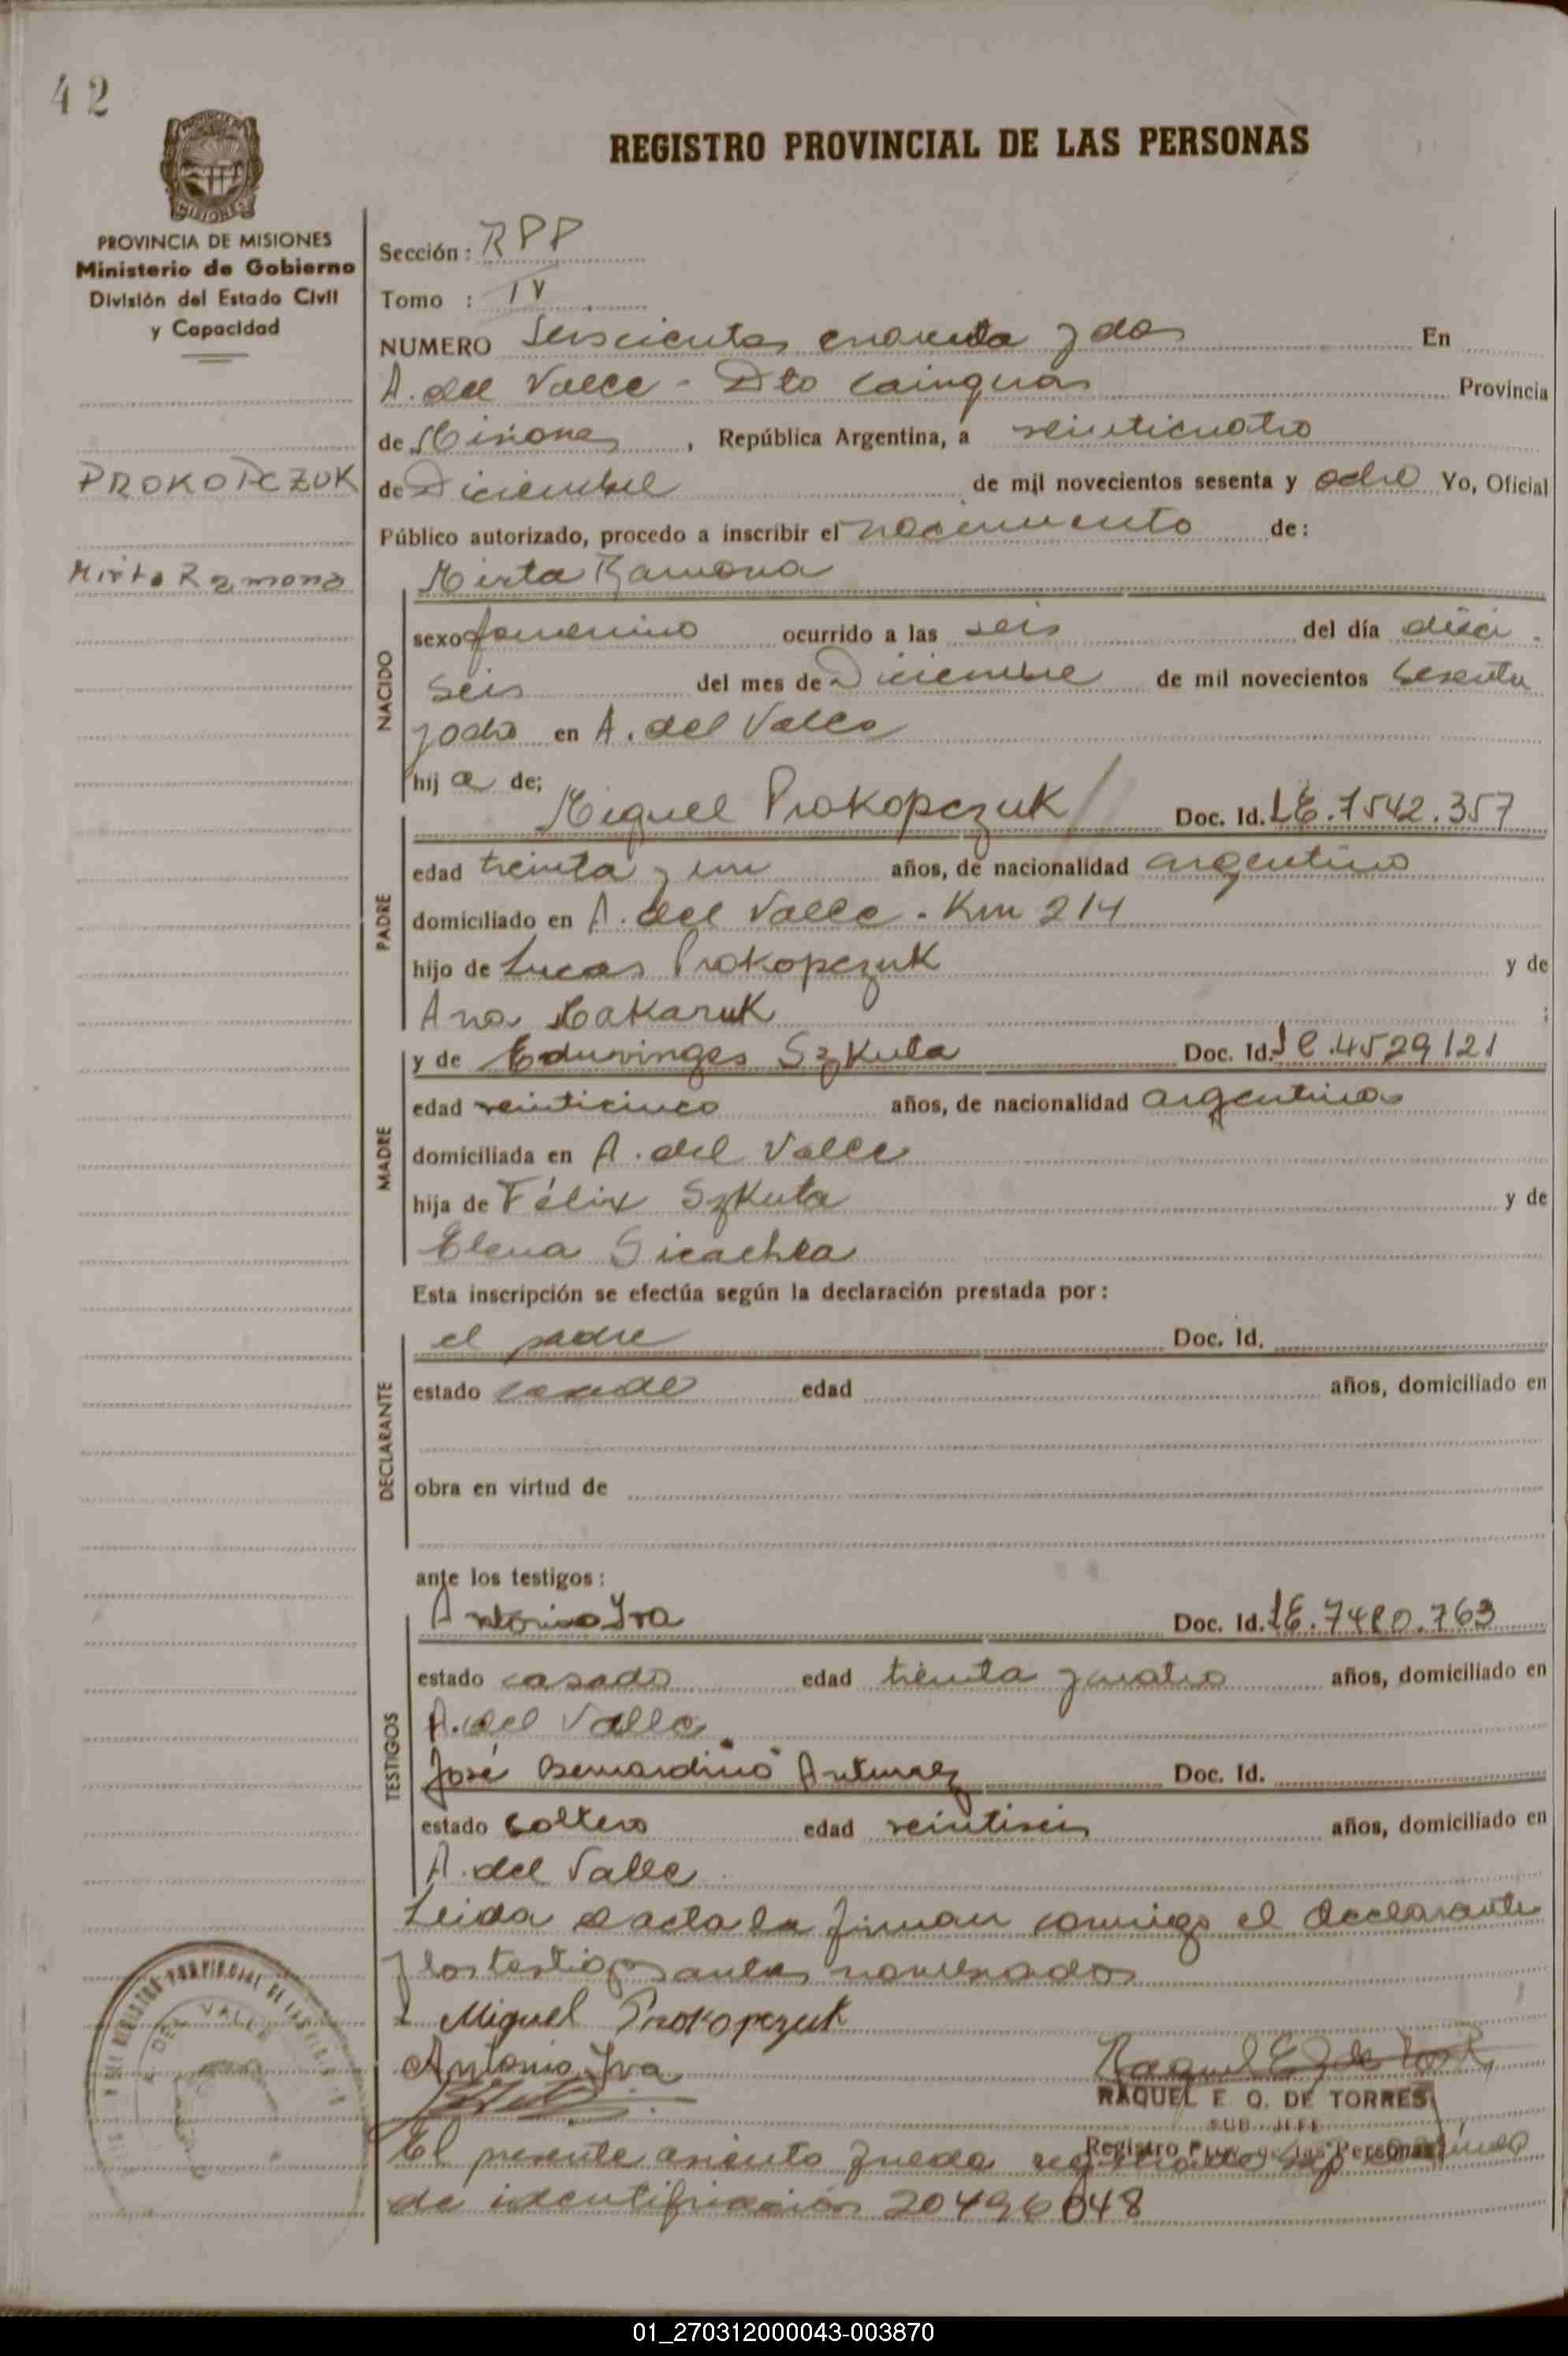 42
REGISTRO PROVINCIAL DE LAS PERSONAS
PROVINCIA DE MISIONES
Ministerio de Gobierno
División del Estado Civil
y Capacidad
Sección: RPP
Tomo : IV
NUMERO Seiscientos cuarenta y dos En
A. del Valle - Dto Cainguas Provincia
de Misiones, República Argentina, a veinticuatro
PROKOPCZUK
de Diciembre de mil novecientos sesenta y ocho Yo, Oficial
Público autorizado, procedo a inscribir el nacimiento de:
Mirta Ramona
Mirta Ramona
NACIDO
sexo femenino ocurrido a las seis del día dieci
seis del mes de Diciembre de mil novecientos sesenta
y ocho en A. del Valle
hij a de;
Miguel Prokopczuk Doc. Id. LE.7542.357
PADRE
edad treinta y un años, de nacionalidad argentino
domiciliado en A. del Valle - Km 214
hijo de Lucas Prokopczuk y de
Ana Makaruk ;
MADRE
y de Eduvinges Szkuta Doc. Id. 4529121
edad veinticinco años, de nacionalidad argentina
domiciliada en A. del Valle
hija de Félix Szkuta y de
Elena
Esta inscripción se efectúa según la declaración prestada por:
DECLARANTE
el padre Doc. Id.
estado edad años, domiciliado en
obra en virtud de
ante los testigos:
TESTIGOS
Antonio Iva Doc. Id. LE.7480.763
estado casado edad treinta y cuatro años, domiciliado en
A. del Valle
José Bernardino Antunez Doc. Id.
estado soltero edad veintiseis años, domiciliado en
A. del Valle
Leida el acta la firman conmigo el declarante
y los testigos antes nombrados
Miguel Prokopczuk
Antonio Iva
RAQUEL E. O. DE TORRES
SUB JEFE
Registro Prov. de las Personas
El presente asiento queda registrado
de identificación 20496048
A. DEL VALLE
01_270312000043-003870